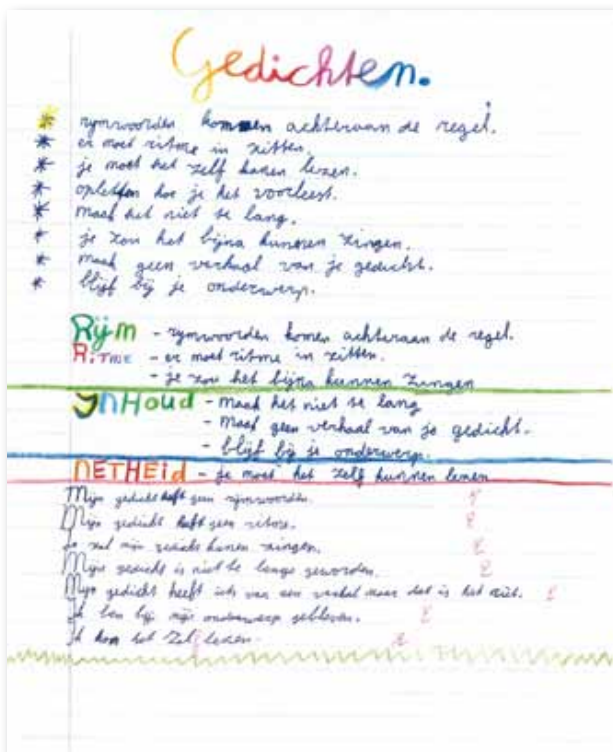 Gedichten.
* rijmwoorden kommen achteraan de regel.
* er moet ritme in zitten.
* je moet het zelf kunen lezen.
* opletten hoe je het voorleest.
* maak het niet te lang.
* je zou het bijna kunnen zingen.
* maak geen verhaal van je gedicht.
* blijf bij je onderwerp.
Rijm - rijmwoorden komen achteraan de regel.
Ritme - er moet ritme in zitten.
- je zou het bijna kunnen zingen
Inhoud - maak het niet te lang
- maak geen verhaal van je gedicht.
- blijf bij je onderwerp.
NETHEid - je moet het zelf kunnen lezen
Mijn gedicht heft geen rijmwoorden.
Mijn gedicht heft geen ritme.
Je zal mijn gedicht kunen zingen.
Mijn gedicht is niet te lange geworden.
Mijn gedicht heeft iets van een verhal maar dat is het niet.
Ik ben bij mijn onderwerp gebleven.
Ik kan het zelf lezen.